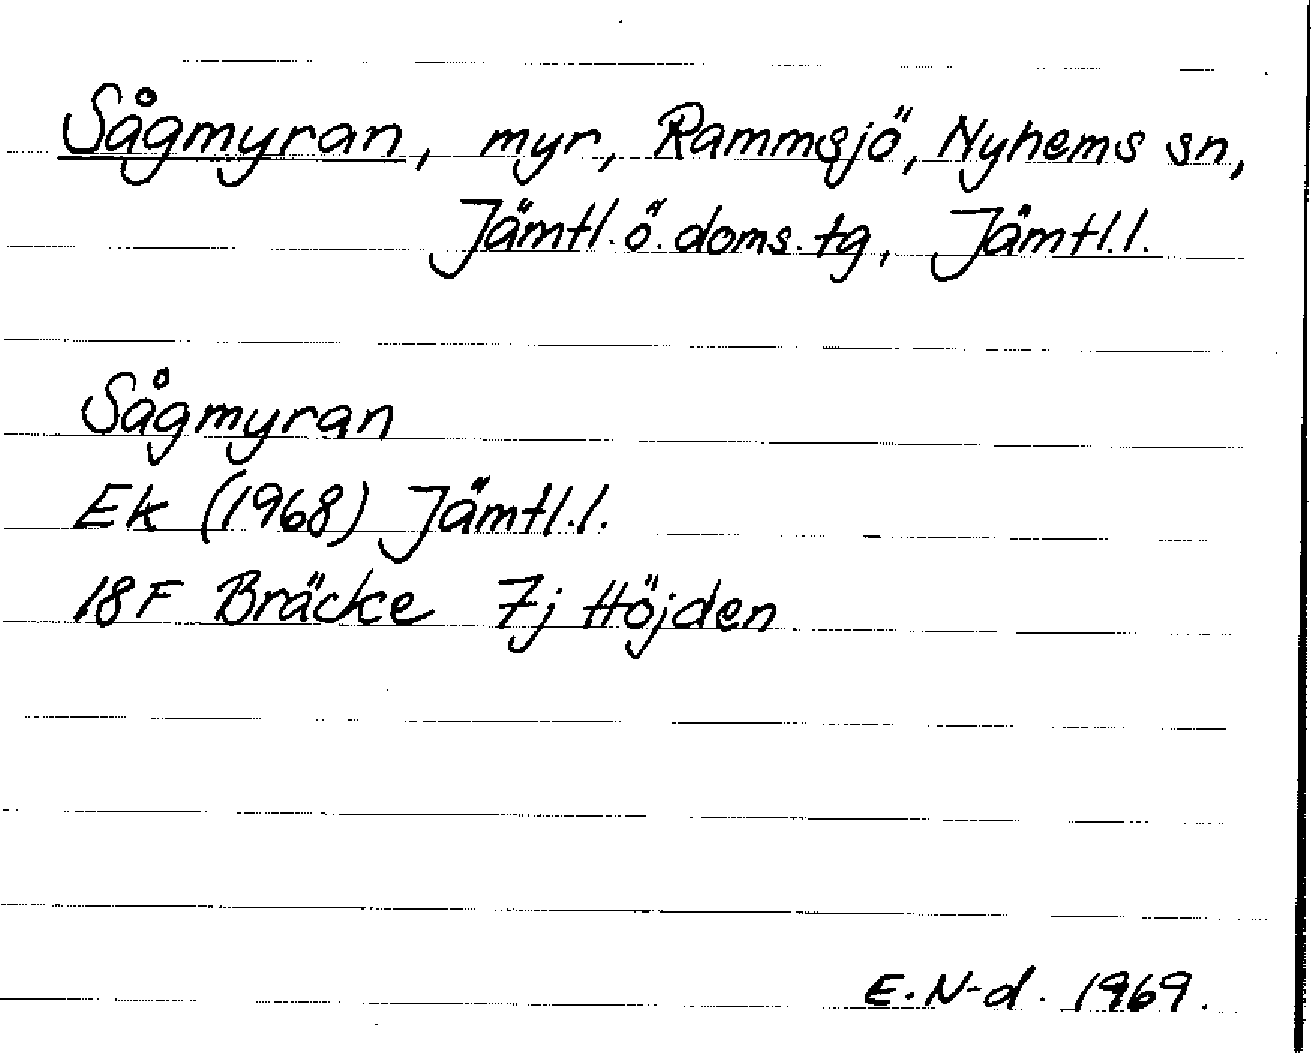 Sågmyran, myr, Rammsjö, Nyhems sn,
Jämtl. ö. doms. tg, Jämtl. l.
Sågmyran
Ek (1968) Jämtl. l.
18F Bräcke 7j Höjden
E. N-d. 1969.